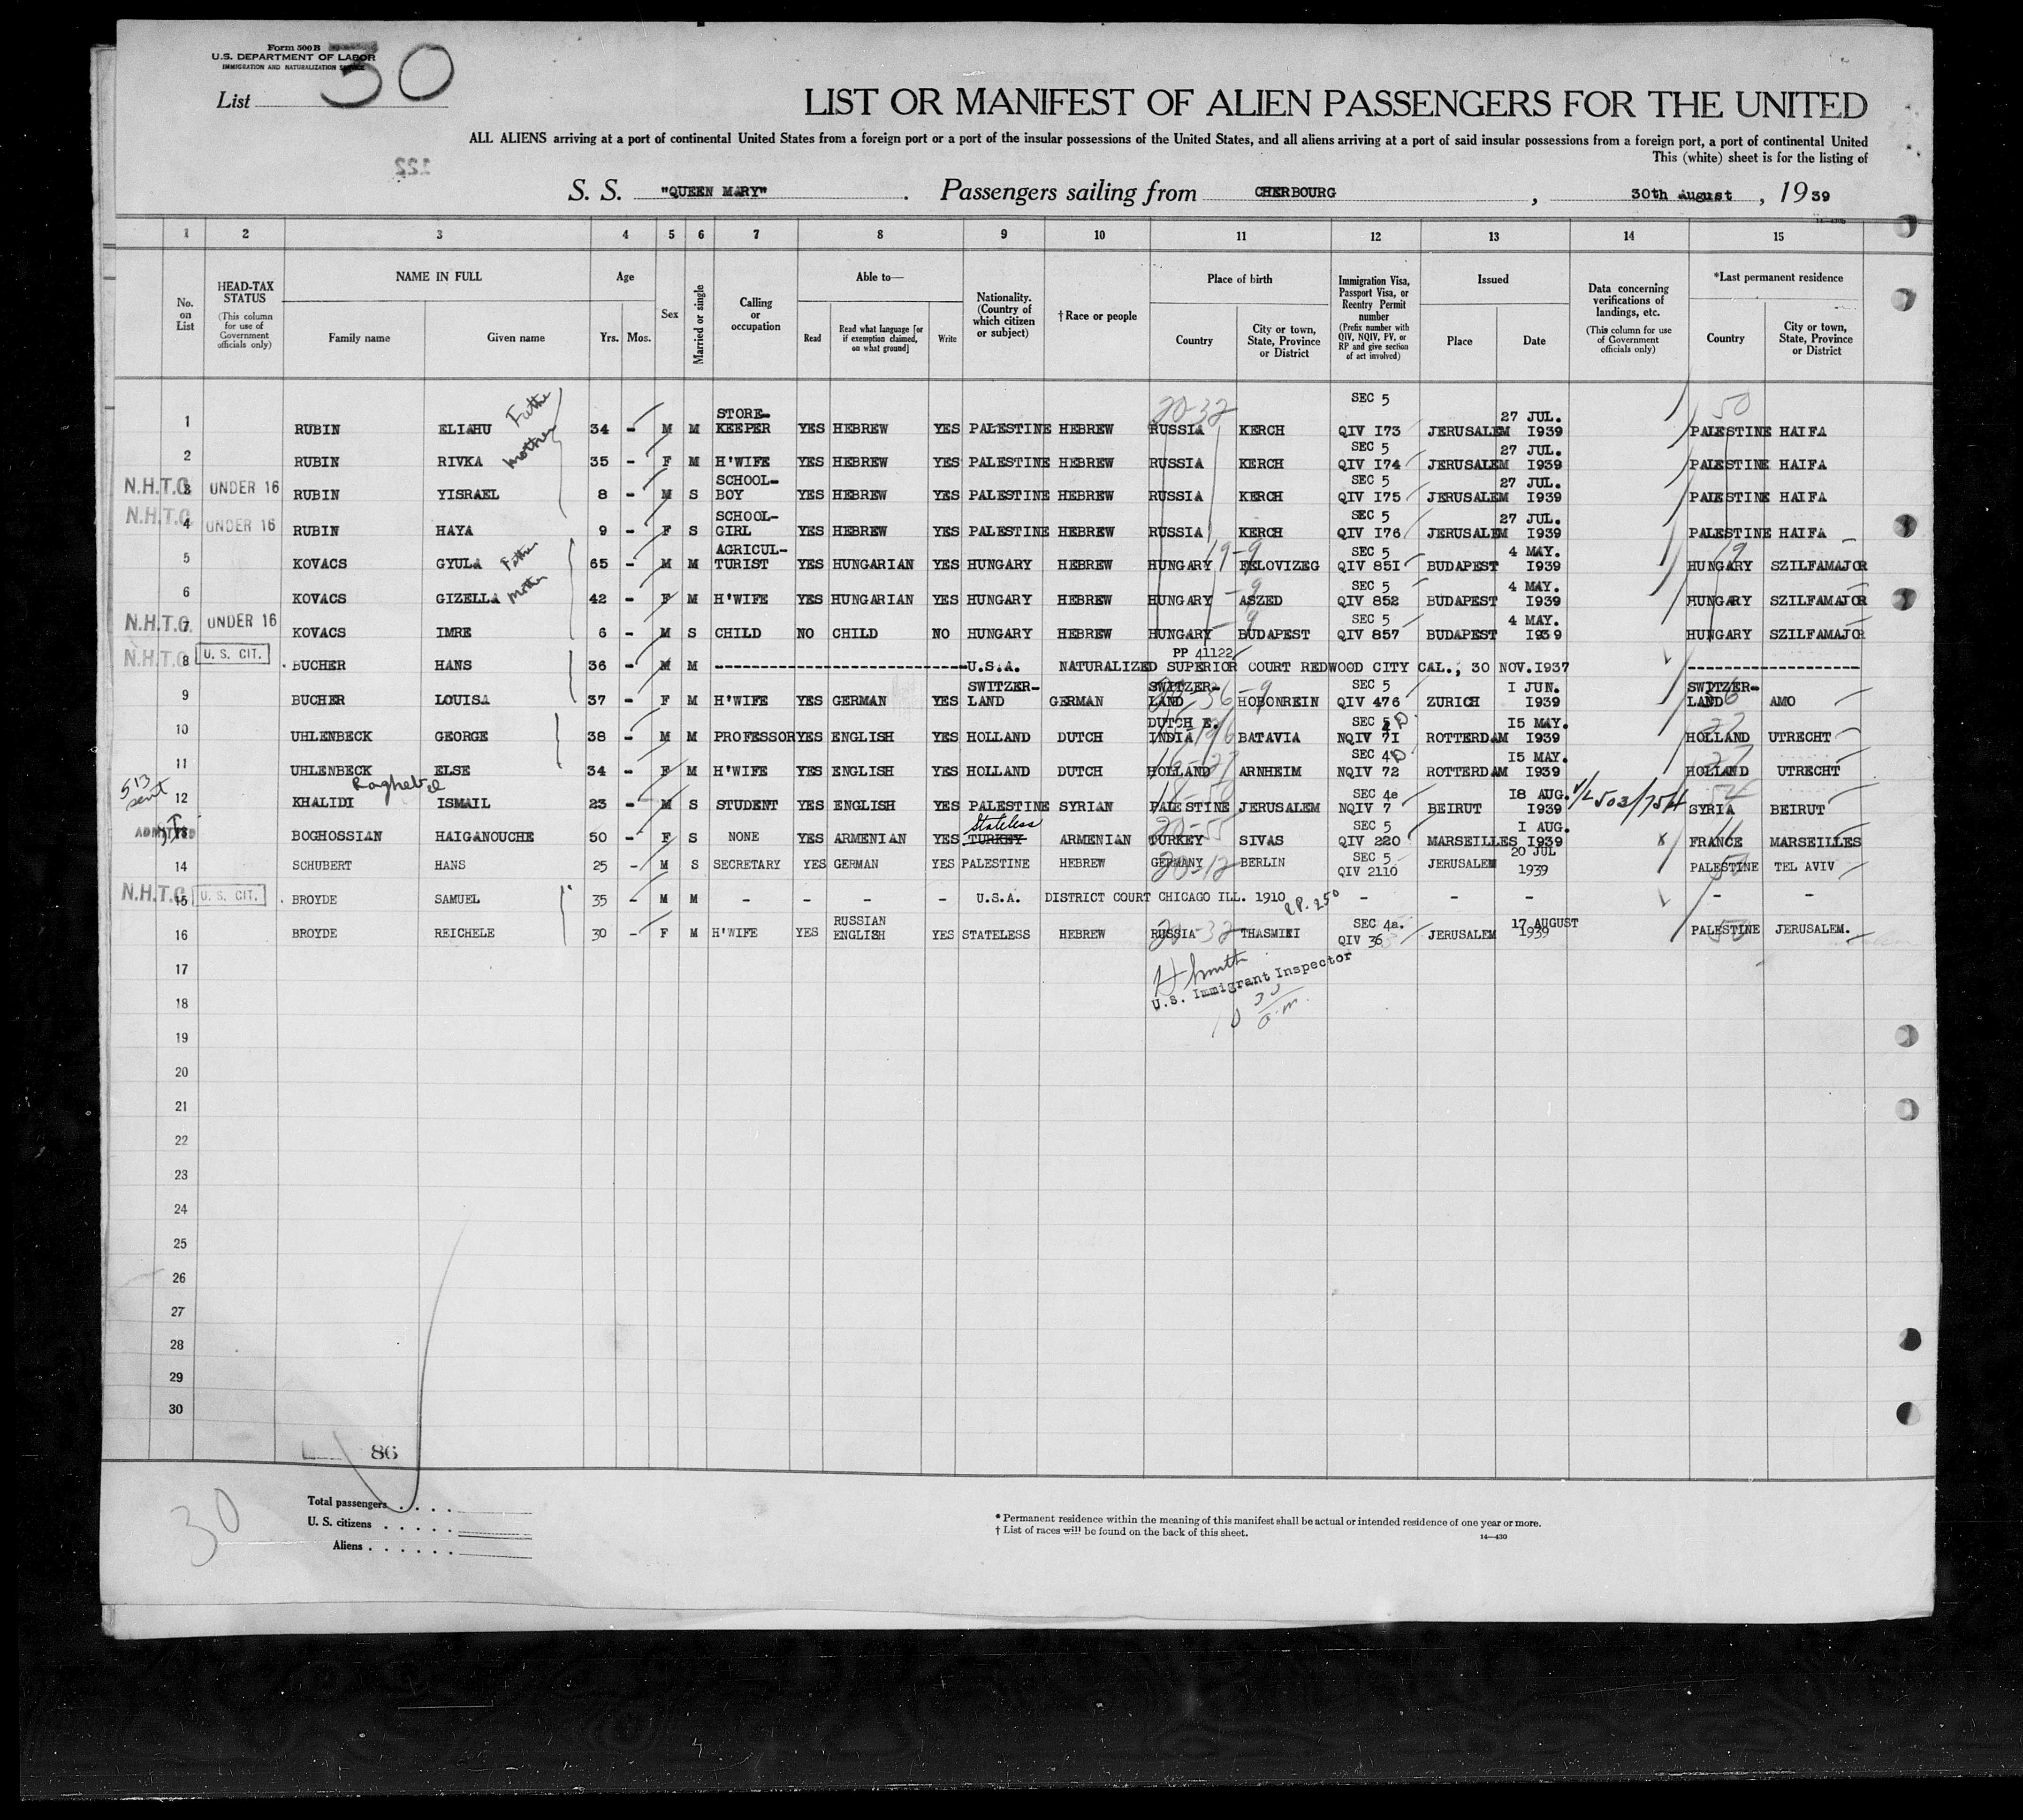 Form 500 B
U.S. DEPARTMENT OF LABOR
IMMIGRATION AND NATURALIZATION SERVICE
List 30
LIST OR MANIFEST OF ALIEN PASSENGERS FOR THE UNITED
ALL ALIENS arriving at a port of continental United States from a foreign port or a port of the insular possessions of the United States, and all aliens arriving at a port of said insular possessions from a foreign port, a port of continental United
This (white) sheet is for the listing of
122
S. S. "QUEEN MARY". Passengers sailing from CHERBOURG, 30th August, 1939
1 2 3 4 5 6 7 8 9 10 11 12 13 14 15
No. on List
HEAD-TAX STATUS (This column for use of Government officials only)
NAME IN FULL Family name Given name
Age Yrs. Mos.
Sex
Married or single
Calling or occupation
Able to— Read Read what language [or if exemption claimed, on what ground] Write
Nationality. (Country of which citizen or subject)
†Race or people
Place of birth Country City or town, State, Province or District
Immigration Visa, Passport Visa, or Reentry Permit number (Prefix number with QIV, NQIV, PV, or RP and give section of act involved)
Issued Place Date
Data concerning verifications of landings, etc. (This column for use of Government officials only)
*Last permanent residence Country City or town, State, Province or District
1 RUBIN ELIAHU Father 34 - M M STORE-KEEPER YES HEBREW YES PALESTINE HEBREW 20-32 RUSSIA KERCH SEC 5 QIV I73 JERUSALEM 27 JUL. I939 50 PALESTINE HAIFA
2 RUBIN RIVKA Mother 35 - F M H'WIFE YES HEBREW YES PALESTINE HEBREW RUSSIA KERCH SEC 5 QIV I74 JERUSALEM 27 JUL. I939 PALESTINE HAIFA
N.H.T.C. 3 UNDER 16 RUBIN YISRAEL 8 - M S SCHOOL-BOY YES HEBREW YES PALESTINE HEBREW RUSSIA KERCH SEC 5 QIV I75 JERUSALEM 27 JUL. I939 PALESTINE HAIFA
N.H.T.C. 4 UNDER 16 RUBIN HAYA 9 - F S SCHOOL-GIRL YES HEBREW YES PALESTINE HEBREW RUSSIA KERCH SEC 5 QIV I76 JERUSALEM 27 JUL. I939 PALESTINE HAIFA
5 KOVACS GYULA Father 65 - M M AGRICUL-TURIST YES HUNGARIAN YES HUNGARY HEBREW HUNGARY 19-9 FELOVIZEG SEC 5 QIV 85I BUDAPEST 4 MAY. I939 19 HUNGARY SZILFAMAJOR
6 KOVACS GIZELLA Mother 42 - F M H'WIFE YES HUNGARIAN YES HUNGARY HEBREW HUNGARY -9 ASZED SEC 5 QIV 852 BUDAPEST 4 MAY. I939 HUNGARY SZILFAMAJOR
N.H.T.C. 7 UNDER 16 KOVACS IMRE 6 - M S CHILD NO CHILD NO HUNGARY HEBREW HUNGARY -9 BUDAPEST SEC 5 QIV 857 BUDAPEST 4 MAY. I939 HUNGARY SZILFAMAJOR
N.H.T.C. 8 U. S. CIT. BUCHER HANS 36 - M M ---------- U.S.A. PP 41122 NATURALIZED SUPERIOR COURT REDWOOD CITY CAL., 30 NOV.I937 ----------
9 BUCHER LOUISA 37 - F M H'WIFE YES GERMAN YES SWITZER-LAND GERMAN SWITZER-LAND HOBONREIN SEC 5 QIV 476 ZURICH I JUN. I939 SWITZER-LAND AMO
10 UHLENBECK GEORGE 38 - M M PROFESSOR YES ENGLISH YES HOLLAND DUTCH DUTCH E. INDIA BATAVIA SEC 4 NQIV 7I ROTTERDAM I5 MAY. I939 HOLLAND UTRECHT
11 UHLENBECK ELSE 34 - F M H'WIFE YES ENGLISH YES HOLLAND DUTCH HOLLAND ARNHEIM SEC 4 NQIV 72 ROTTERDAM I5 MAY. I939 27 HOLLAND UTRECHT
513 sent 12 KHALIDI ISMAIL 23 - M S STUDENT YES ENGLISH YES PALESTINE SYRIAN PALESTINE JERUSALEM SEC 4e NQIV 7 BEIRUT I8 AUG. I939 SYRIA BEIRUT
ADMITTED 13 BOGHOSSIAN HAIGANOUCHE 50 - F S NONE YES ARMENIAN YES Stateless TURKEY ARMENIAN 20-55 TURKEY SIVAS SEC 5 QIV 220 MARSEILLES I AUG. I939 FRANCE MARSEILLES
14 SCHUBERT HANS 25 - M S SECRETARY YES GERMAN YES PALESTINE HEBREW 20-12 GERMANY BERLIN SEC 5 QIV 2110 JERUSALEM 20 JUL 1939 50 PALESTINE TEL AVIV
N.H.T.C. 15 U. S. CIT. BROYDE SAMUEL 35 - M M - - - - U.S.A. DISTRICT COURT CHICAGO ILL. 1910 P.P. 250 - - - - -
16 BROYDE REICHELE 30 - F M H'WIFE YES RUSSIAN ENGLISH YES STATELESS HEBREW 20-32 RUSSIA THASMINI SEC 4a. QIV 36 JERUSALEM 17 AUGUST 1939 50 PALESTINE JERUSALEM.
17
H Smith
U.S. Immigrant Inspector
18
10 30 a.m.
19
20
21
22
23
24
25
26
27
28
29
30
86
30
Total passengers
U. S. citizens
Aliens
* Permanent residence within the meaning of this manifest shall be actual or intended residence of one year or more.
† List of races will be found on the back of this sheet.
14—430